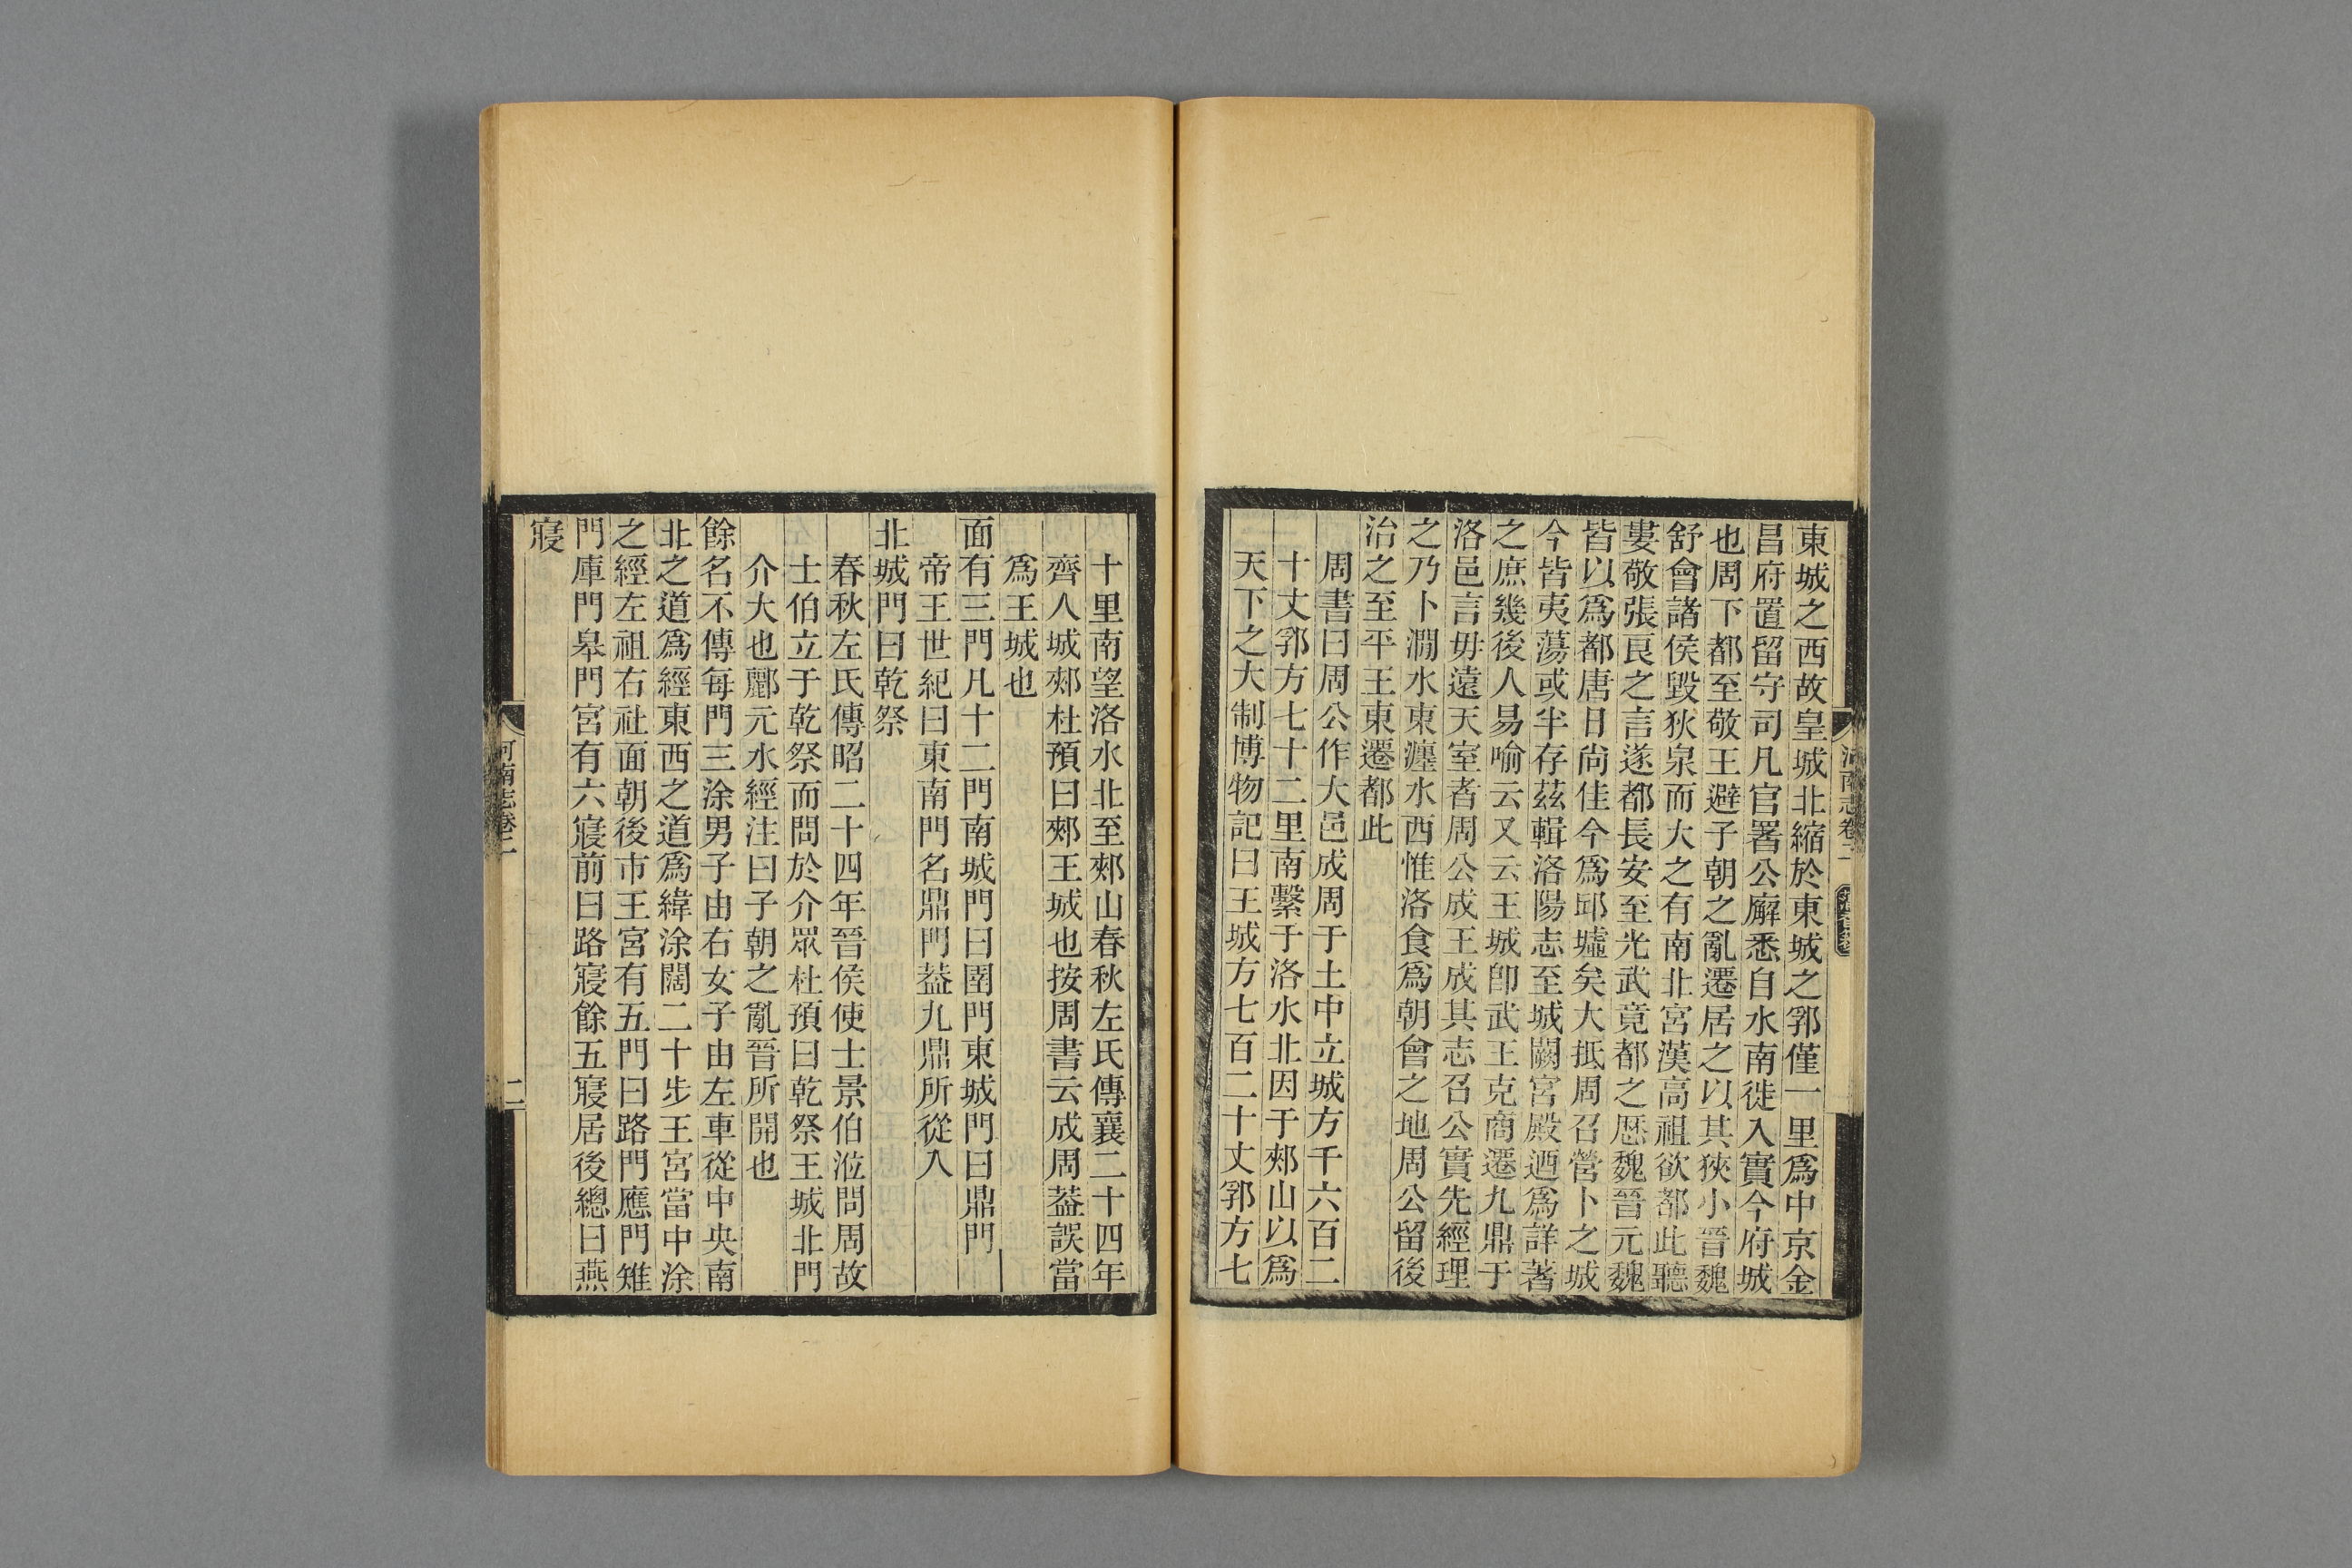 東城之西故皇城北縮於東城之郛僅一里爲中京金
昌府置留守司凡官署公廨悉自水南徙入實今府城
也周下都至敬王避子朝之亂遷居之以其狹小晉魏
舒會諸侯毀狄泉而大之有南北宮漢高祖欲都此聽
婁敬張良之言遂都長安至光武竟都之厯魏晉元魏
皆以爲都唐日尙佳今爲邱墟矣大抵周召營卜之城
今皆夷蕩或半存茲輯洛陽志至城闕宮殿迺爲詳著
之庶幾後人易喻云又云王城卽武王克商遷九鼎于
洛邑言毋遠天室者周公成王成其志召公實先經理
之乃卜澗水東瀍水西惟洛食爲朝會之地周公留後
治之至平王東遷都此
周書曰周公作大邑成周于土中立城方千六百二
十丈郛方七十二里南繫于洛水北因于郟山以爲
天下之大制博物記曰王城方七百二十丈郛方七
河南志卷二
十里南望洛水北至郟山春秋左氏傳襄二十四年
齊人城郟杜預曰郟王城也按周書云成周葢誤當
爲王城也
面有三門凡十二門南城門曰圉門東城門曰鼎門
帝王世紀曰東南門名鼎門葢九鼎所從入
北城門曰乾祭
春秋左氏傳昭二十四年晉侯使士景伯涖問周故
士伯立于乾祭而問於介眾杜預曰乾祭王城北門
介大也酈元水經注曰子朝之亂晉所開也
餘名不傳每門三涂男子由右女子由左車從中央南
北之道爲經東西之道爲緯涂闊二十步王宮當中涂
之經左祖右社面朝後市王宮有五門曰路門應門雉
門庫門皋門宮有六寢前曰路寢餘五寢居後總曰燕
寢
河南志卷二
二